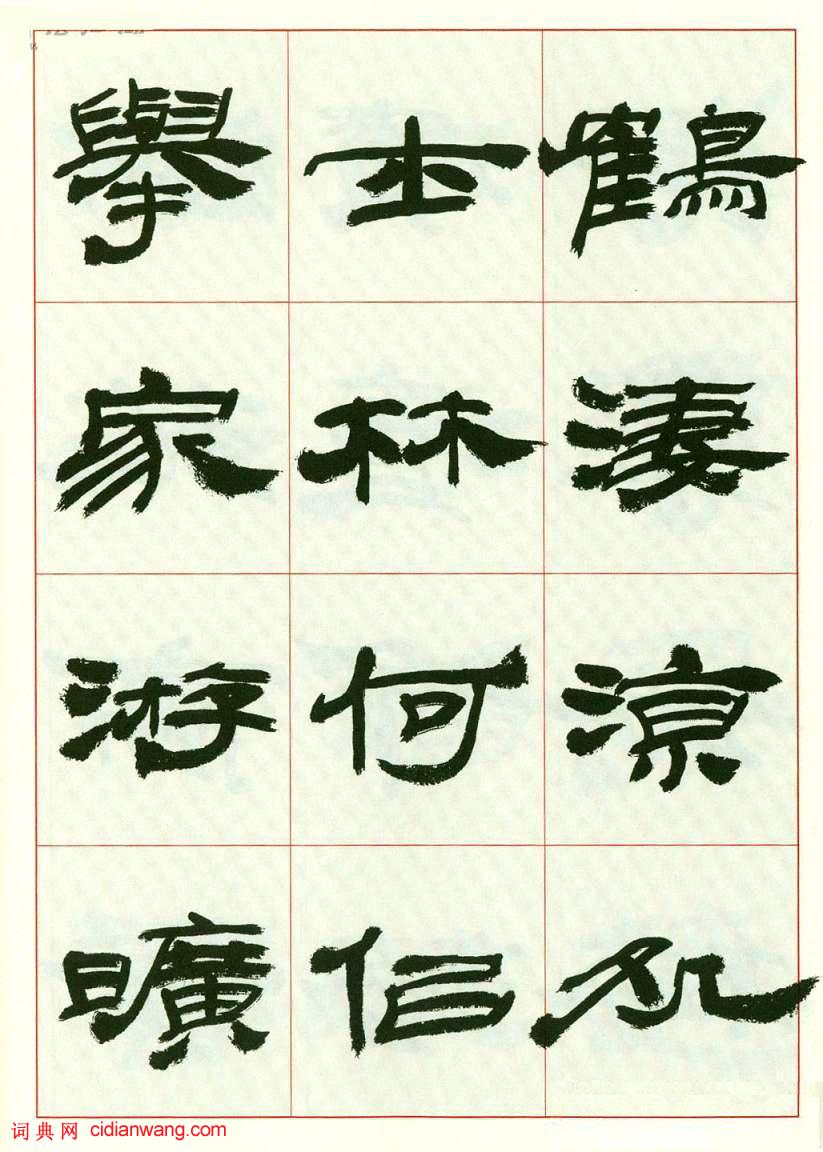 鶴淒涼処
士林何似
舉家游曠
词典网 cidianwang.com